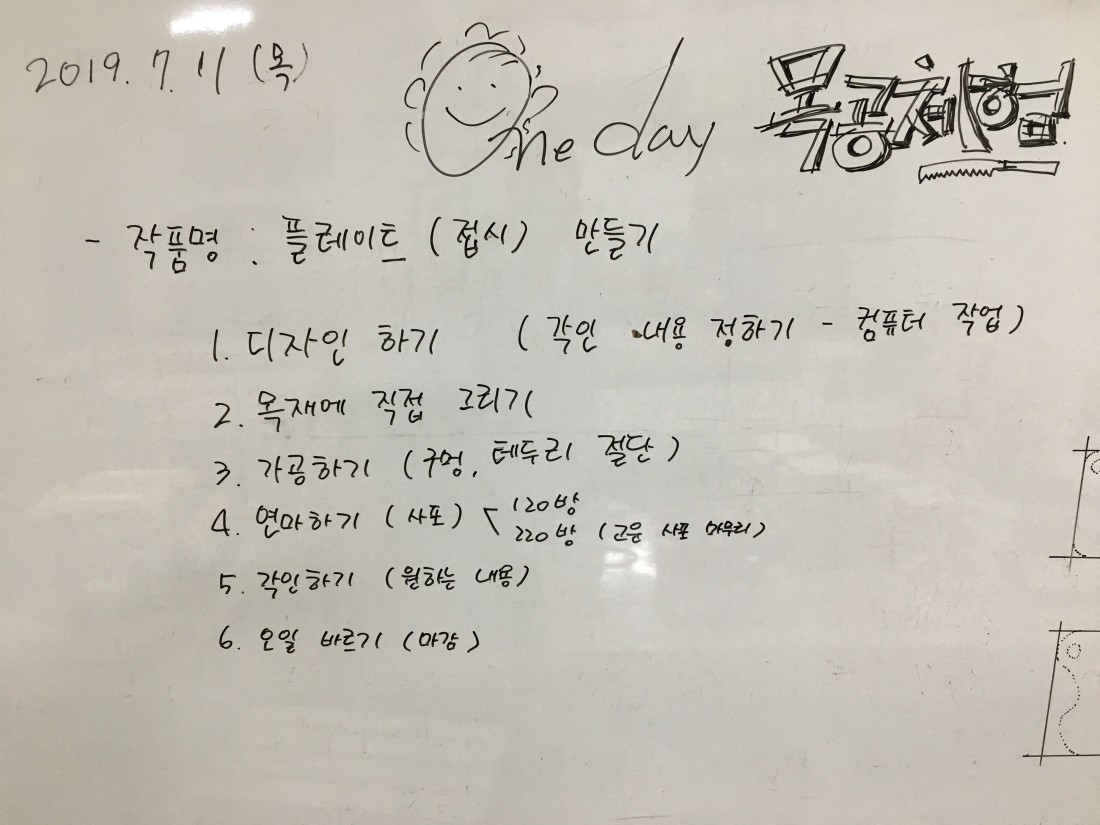 2019. 7. 11 (목)
One day 목공체험
- 작품명 : 플레이트 (접시) 만들기
1. 디자인 하기 (각인 내용 정하기 - 컴퓨터 작업)
2. 목재에 직접 그리기
3. 가공하기 (구멍, 테두리 절단)
4. 연마하기 (사포) 120방
220방 (고운 사포 마무리)
5. 각인하기 (원하는 내용)
6. 오일 바르기 (마감)